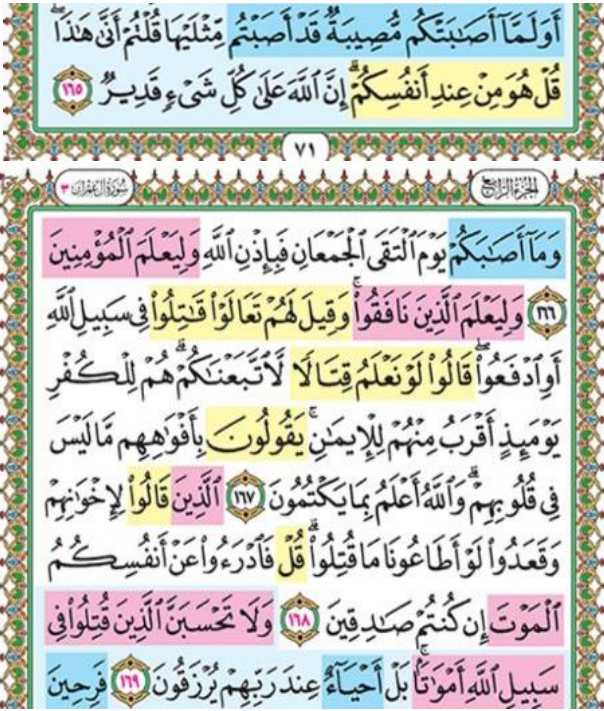 أَوَلَمَّآ أَصَٰبَتْكُم مُّصِيبَةٌ قَدْ أَصَبْتُم مِّثْلَيْهَا قُلْتُمْ أَنَّىٰ هَٰذَا ۖ
قُلْ هُوَ مِنْ عِندِ أَنفُسِكُمْ ۗ إِنَّ ٱللَّهَ عَلَىٰ كُلِّ شَىْءٍ قَدِيرٌ ١٦٥
٧١
الجُزْءُ الرَّابِعُ سُورَةُ آلِ عِمْرَان ٣
وَمَآ أَصَٰبَكُمْ يَوْمَ ٱلْتَقَى ٱلْجَمْعَانِ فَبِإِذْنِ ٱللَّهِ وَلِيَعْلَمَ ٱلْمُؤْمِنِينَ
١٦٦ وَلِيَعْلَمَ ٱلَّذِينَ نَافَقُوا۟ ۚ وَقِيلَ لَهُمْ تَعَالَوْا۟ قَٰتِلُوا۟ فِى سَبِيلِ ٱللَّهِ
أَوِ ٱدْفَعُوا۟ ۖ قَالُوا۟ لَوْ نَعْلَمُ قِتَالًا لَّٱتَّبَعْنَٰكُمْ ۗ هُمْ لِلْكُفْرِ
يَوْمَئِذٍ أَقْرَبُ مِنْهُمْ لِلْإِيمَٰنِ ۚ يَقُولُونَ بِأَفْوَٰهِهِم مَّا لَيْسَ
فِى قُلُوبِهِمْ ۗ وَٱللَّهُ أَعْلَمُ بِمَا يَكْتُمُونَ ١٦٧ ٱلَّذِينَ قَالُوا۟ لِإِخْوَٰنِهِمْ
وَقَعَدُوا۟ لَوْ أَطَاعُونَا مَا قُتِلُوا۟ ۗ قُلْ فَٱدْرَءُوا۟ عَنْ أَنفُسِكُمُ
ٱلْمَوْتَ إِن كُنتُمْ صَٰدِقِينَ ١٦٨ وَلَا تَحْسَبَنَّ ٱلَّذِينَ قُتِلُوا۟ فِى
سَبِيلِ ٱللَّهِ أَمْوَٰتًۢا ۚ بَلْ أَحْيَآءٌ عِندَ رَبِّهِمْ يُرْزَقُونَ ١٦٩ فَرِحِينَ